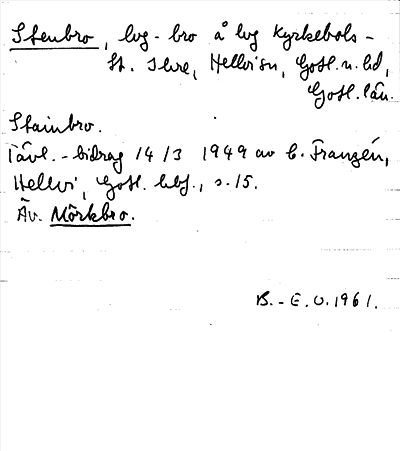 Stenbro, lvg-bro å lvg Kyrkebols -
St. Ihre, Hellvi sn, Gotl. n. hd,
Gotl. län.
Stainbro.
Tävl.-bidrag 14/3 1949 av C. Franzén,
Hellvi, Gotl. hbf., s. 15.
Äv. Mörkbro.
B.-E.O. 1961.